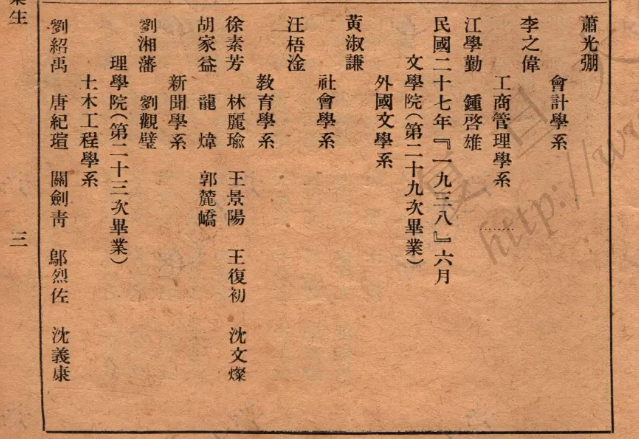 蕭光弸
會計學系
李之偉
工商管理學系
江學勤　鍾啓雄
民國二十七年『一九三八』六月
文學院（第二十九次畢業）
外國文學系
黃淑謙
社會學系
汪梧淦
教育學系
徐素芳　林麗瑜　王景陽　王復初　沈文燦
胡家益　龍煒　郭麓嶠
新聞學系
劉湘藩　劉觀璧
理學院（第二十三次畢業）
土木工程學系
劉紹禹　唐紀瑄　關劍靑　鄔烈佐　沈義康
業生
三
http://w